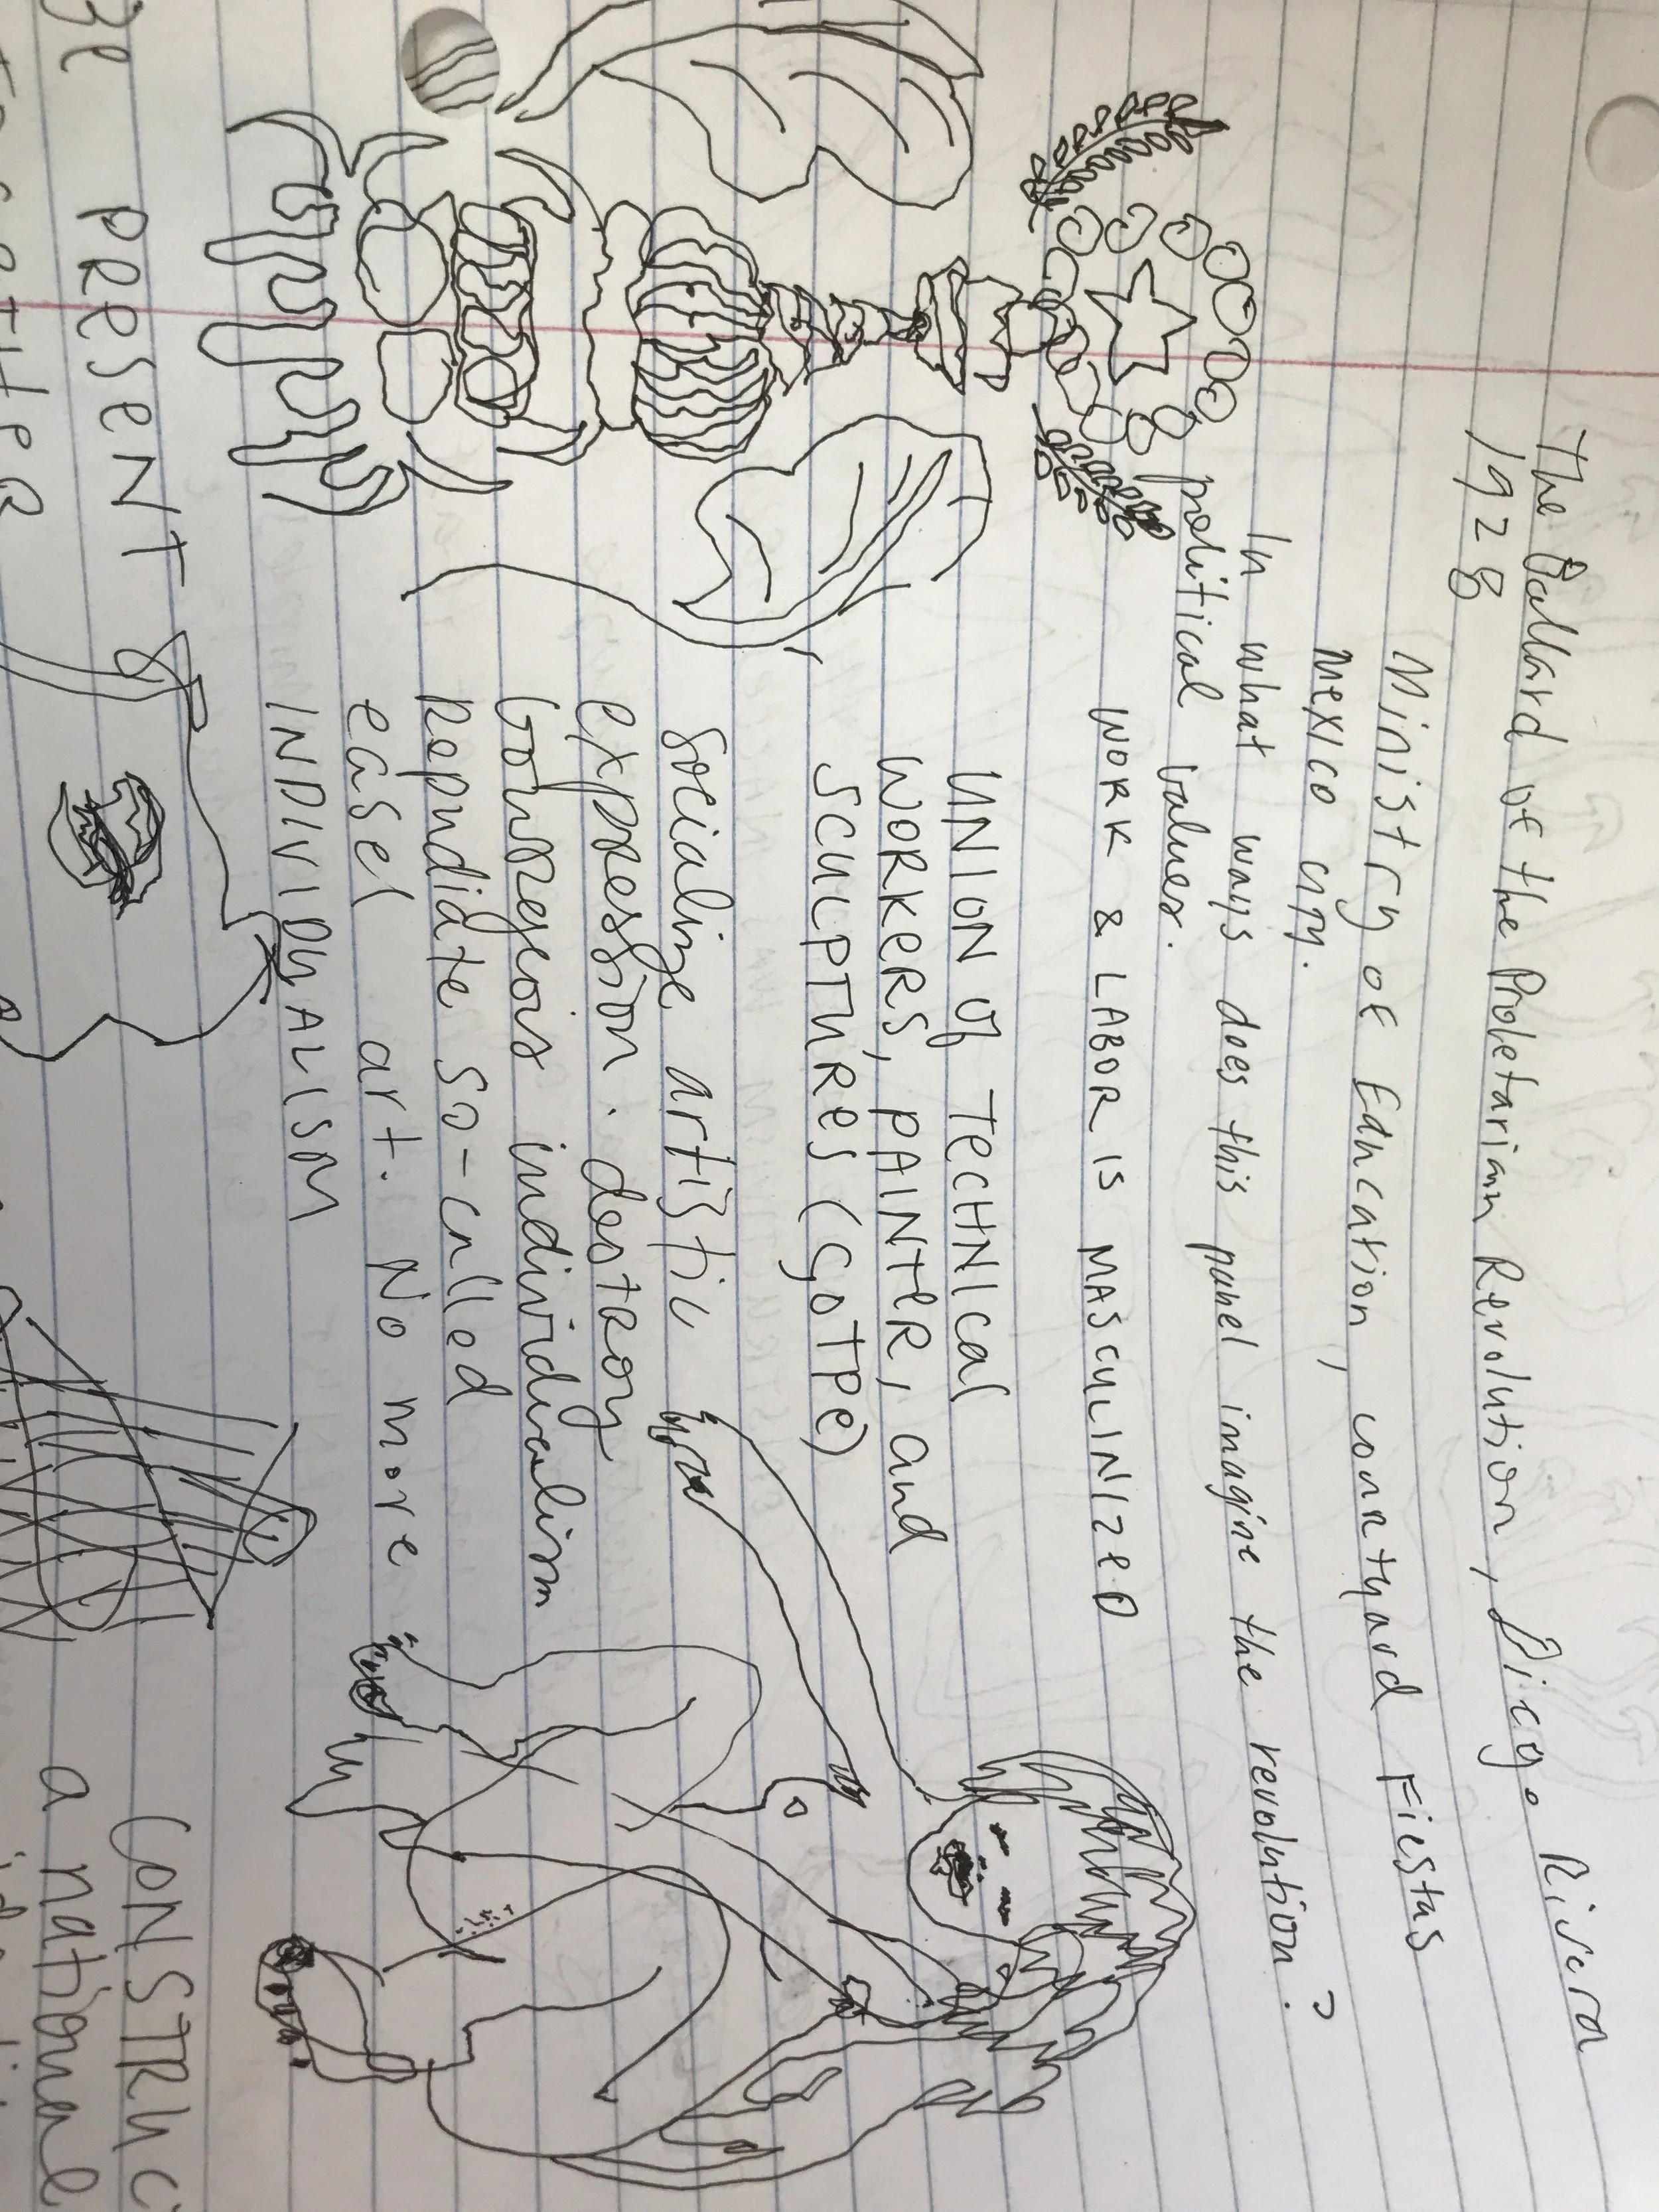 The Ballard of the Proletarian Revolution, Diego Rivera
1928
Ministry of Education, courtyard Fiestas
Mexico City.
In what ways does this panel imagine the revolution?
political values.
WORK & LABOR IS MASCULINIZED
UNION of TECHNICAL
WORKERS, PAINTER, and
SCULPTURES (SOTPE)
Socialize artistic
expression. destroy
bourgeois individualism
Repudiate so-called
easel art. No more
INDIVIDUALISM
PRESENT &
CONSTRUC
a national